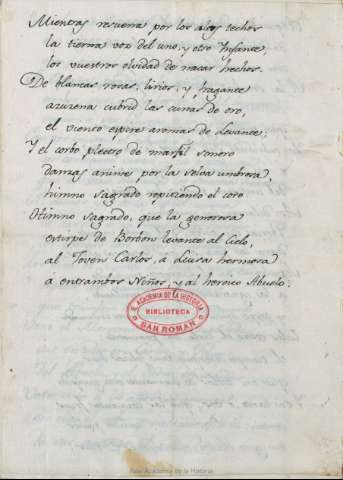 Mientras resuena por los altos techos
la tierna voz del uno, y otro Infante,
los vuestros olvidad de nacar hechos.
De blancas rosas, lirios, y fragante
azuzena cubrid las cunas de oro,
el viento espire aromas de Levante:
Y el corbo plectro de marfil sonoro
danzas anime por la selva umbrosa,
himno sagrado repitiendo el coro
Himno sagrado, que la generosa
estirpe de Borbon levante al Cielo,
al Joven Carlos, a Luisa hermosa
a entrambos Niños, y al heroico Abuelo.
R. ACADEMIA DE LA HISTORIA
BIBLIOTECA
SAN ROMAN
Real Academia de la Historia